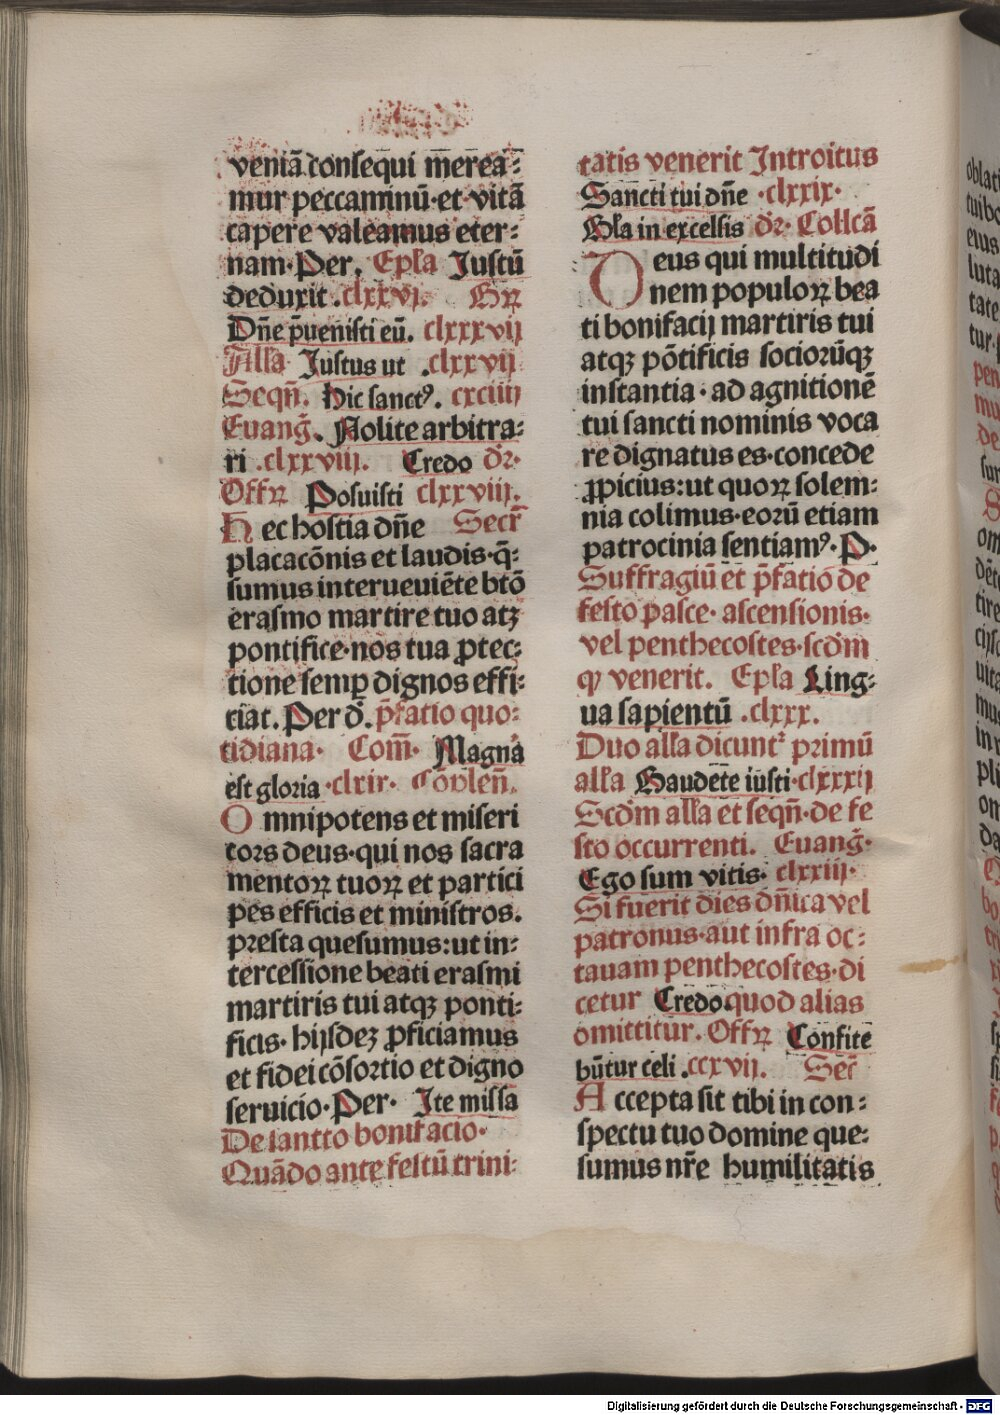 veniā consequi merea-
mur peccaminū·et vitā
capere valeamus eter-
nam·Per. Epl̄a Justū
deduxit .clxxvj. Gꝛꝝ
Dn̄e p̄uenisti eū. clxxxvij
All̄a Justus ut .clxxvij
Seqn̄. Hic sanctꝰ. cxciiij
Euanḡ. Nolite arbitra-
ri .clxxviij. Credo dr̄·
Offꝝ Posuisti clxxviij.
Hec hostia dn̄e Secr̄
placacōnis et laudis·q̄-
sumus interueuiēte btō
erasmo martire tuo atqꝫ
pontifice·nos tua ꝓtec-
tione semp̲ dignos effi-
ciat. Per d̄. p̄fatio quo-
tidiana· Com̄· Magna
est gloria ·clxix· Cōplen̄.
Omnipotens et miseri
cors deus·qui nos sacra
mentoꝝ tuoꝝ et partici
pes efficis et ministros.
presta quesumus:ut in-
tercessione beati erasmi
martiris tui atqꝫ ponti-
ficis· hijsdeꝫ ꝓficiamus
et fidei cōsortio et digno
seruicio·Per· Ite missa
De sancto bonifacio·
Quādo ante festū trini-
tatis venerit Introitus
Sancti tui dn̄e ·clxxix·
Gl̄a in excelsis dr̄· Collcā
Deus qui multitudi
nem populoꝝ bea
ti bonifacij martiris tui
atqꝫ pōtificis sociorūqꝫ
instantia· ad agnitionē
tui sancti nominis voca
re dignatus es·concede
ꝓpicius:ut quoꝝ solem-
nia colimus·eorū etiam
patrocinia sentiamꝰ·P·
Suffragiū et p̄fatio de
festo pasce· ascensionis·
vel penthecostes·scdm̄
qꝫ venerit. Epl̄a Ling-
ua sapientū .clxxx.
Duo all̄a dicuntᷣ primū
all̄a Gaudete iusti·clxxxij
Scdm̄ all̄a et seqn̄·de fe
sto occurrenti. Euanḡ·
Ego sum vitis· clxxiij·
Si fuerit dies dn̄ica vel
patronus·aut infra oc-
tauam penthecostes·di
cetur Credo.quod alias
omittitur. Offꝝ Confite
būtur celi .ccxvij. Sec̄
Accepta sit tibi in con-
spectu tuo domine que-
sumus nr̄e humilitatis
Digitalisierung gefördert durch die Deutsche Forschungsgemeinschaft - DFG